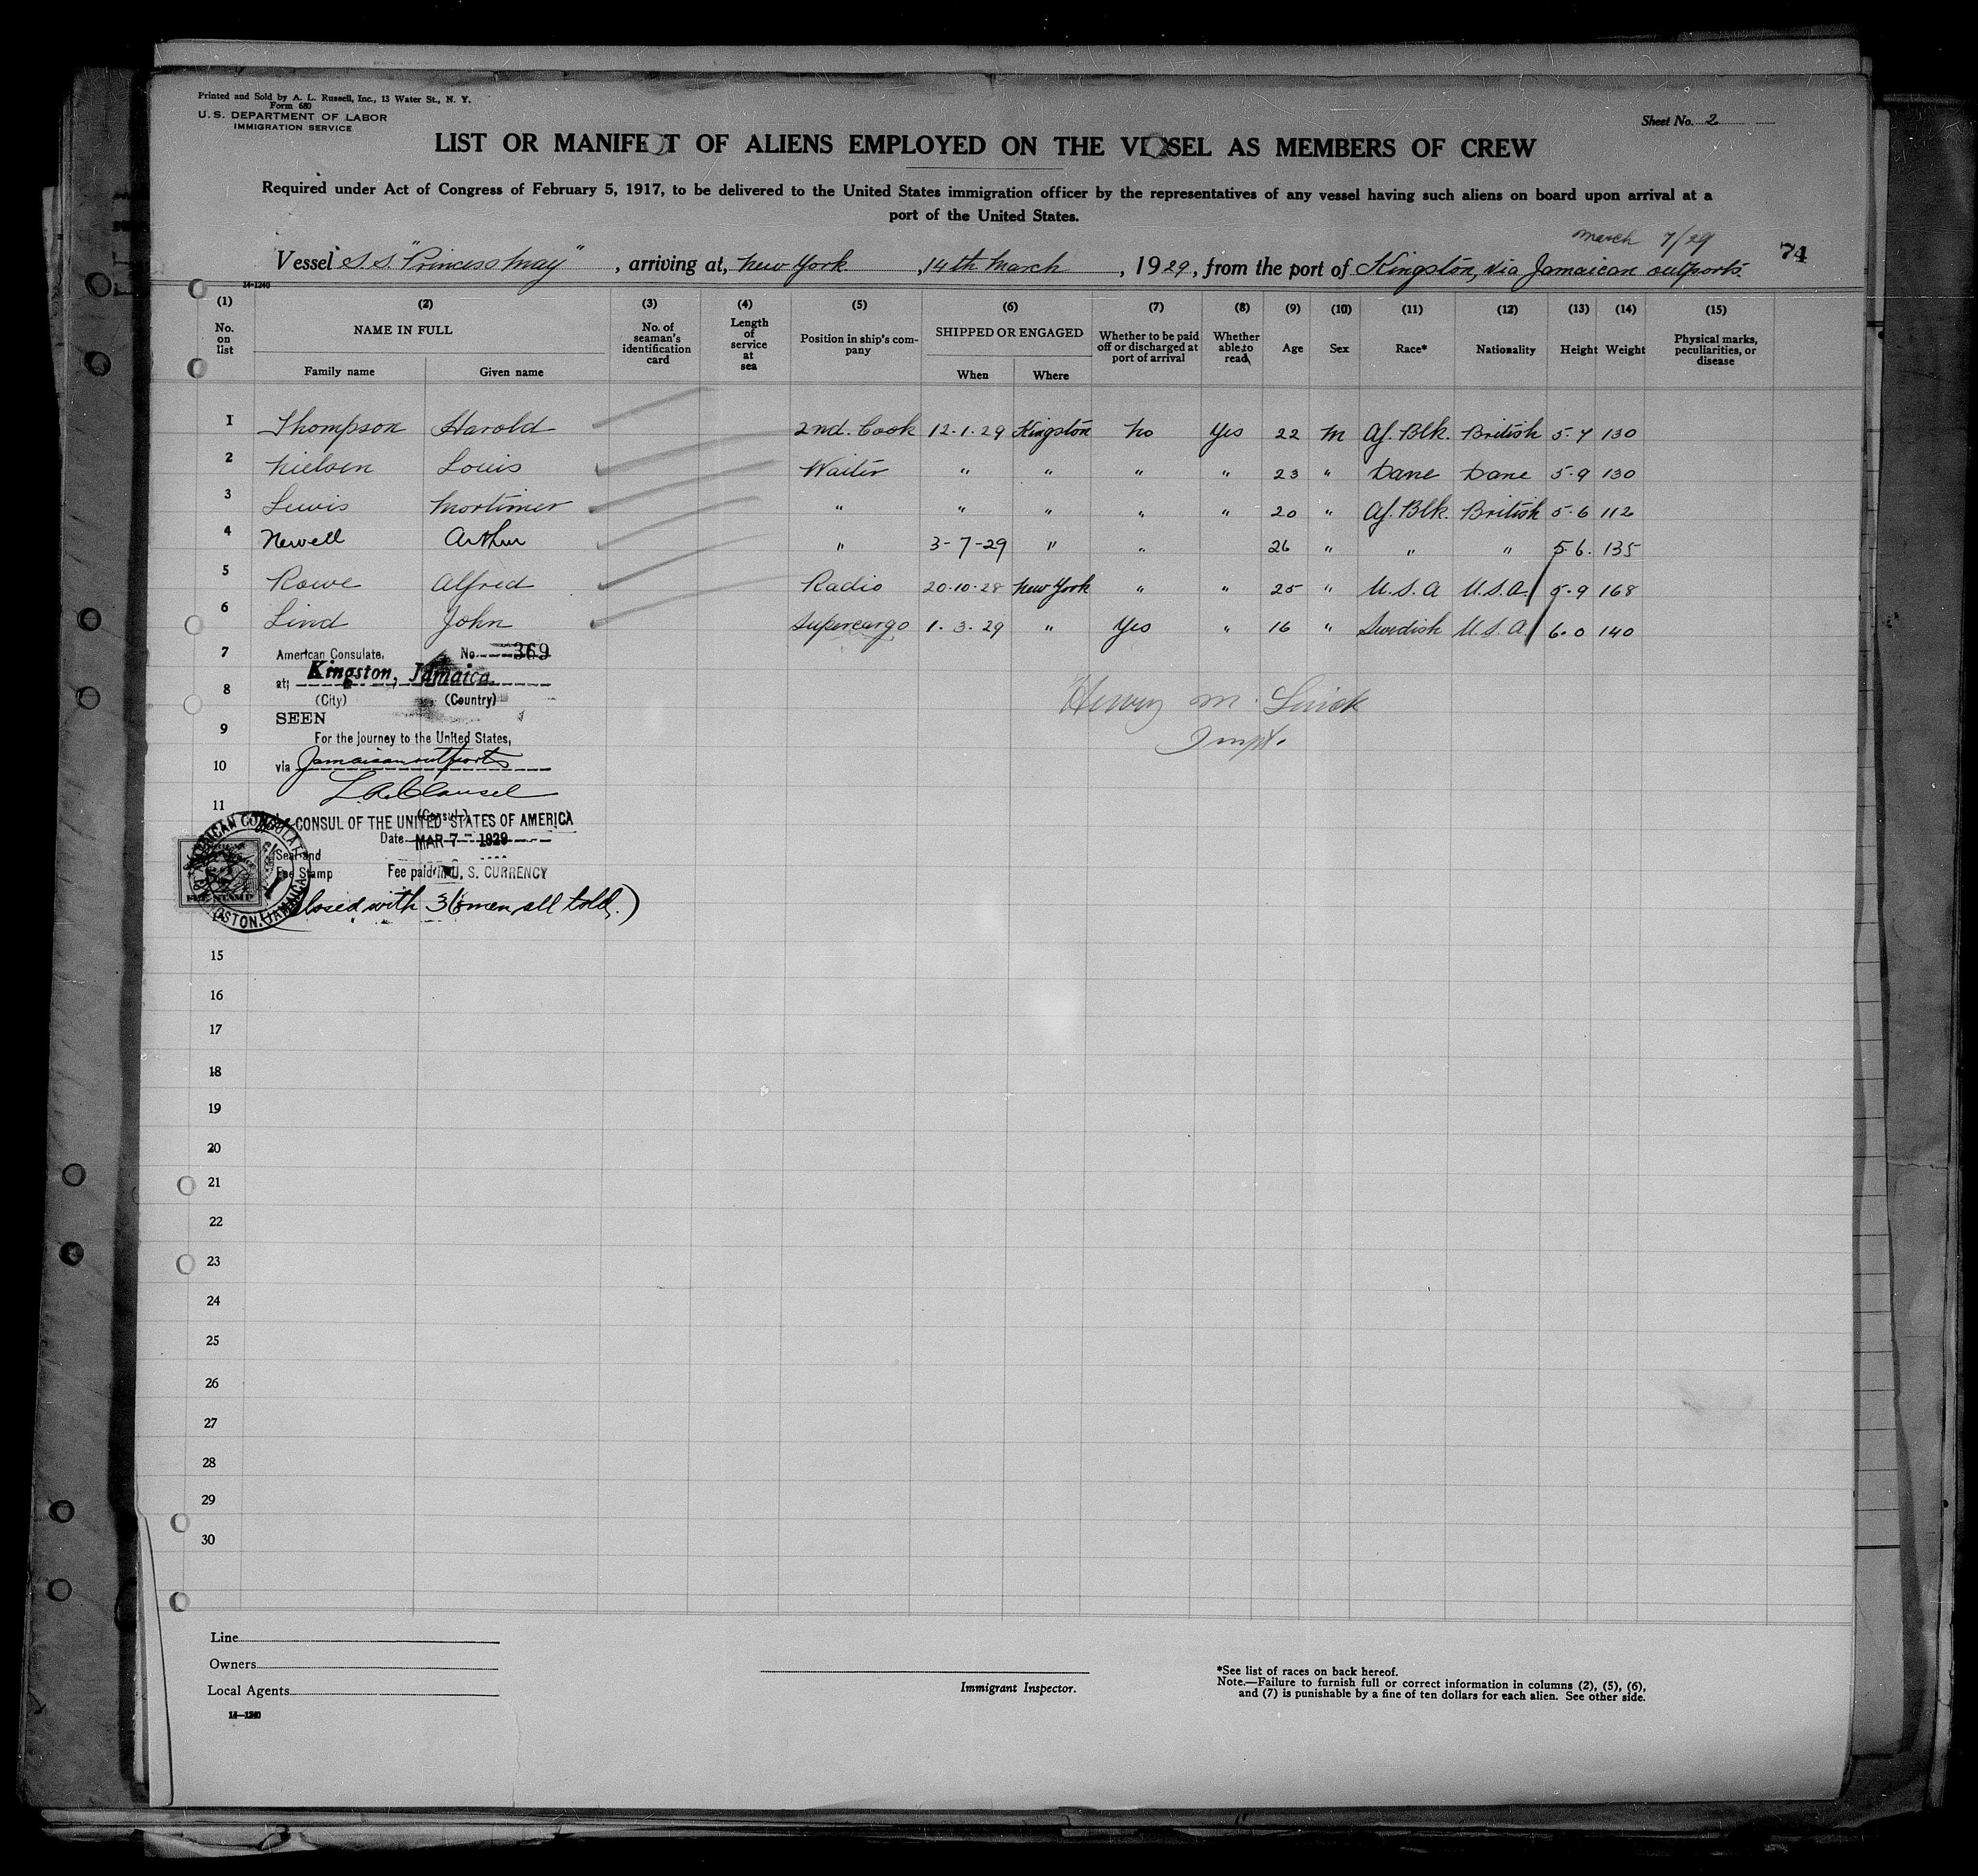 Printed and Sold by A. L. Russell, Inc., 13 Water St., N. Y.
Form 680
U. S. DEPARTMENT OF LABOR
IMMIGRATION SERVICE
Sheet No. 2
LIST OR MANIFEST OF ALIENS EMPLOYED ON THE VESSEL AS MEMBERS OF CREW
Required under Act of Congress of February 5, 1917, to be delivered to the United States immigration officer by the representatives of any vessel having such aliens on board upon arrival at a
port of the United States.
March 7/29
74
Vessel S.S. "Princess May", arriving at, New York, 14th March, 1929, from the port of Kingston, via Jamaican outports.
14-1240
(1) (2) (3) (4) (5) (6) (7) (8) (9) (10) (11) (12) (13) (14) (15)
No. on list NAME IN FULL No. of seaman's identification card Length of service at sea Position in ship's company SHIPPED OR ENGAGED Whether to be paid off or discharged at port of arrival Whether able to read Age Sex Race* Nationality Height Weight Physical marks, peculiarities, or disease
Family name Given name When Where
1 Thompson Harold 2nd. Cook 12-1-29 Kingston No Yes 22 M Af. Blk. British 5-7 130
2 Nielsen Louis Waiter " " " " 23 " Dane Dane 5-9 130
3 Lewis Mortimer " " " " " 20 " Af. Blk. British 5-6 112
4 Newell Arthur " 3-7-29 " " 26 " " " 5.6. 135
5 Rowe Alfred Radio 20-10-28 New York " " 25 " U.S.A U.S.A. 5-9 168
6 Lind John Supercargo 1.3.29 " Yes " 16 " Swedish U.S.A. 6.0 140
7 American Consulate, No 369
at; Kingston, Jamaica.
8 (City) (Country)
SEEN
9 For the journey to the United States,
10 via Jamaican outports
11
(Consul)
CONSUL OF THE UNITED STATES OF AMERICA
Date MAR 7 - 1929
Seal and
Fee Stamp Fee paid in U. S. CURRENCY
AMERICAN CONSULATE KINGSTON, JAMAICA
FEE STAMP
(Closed with 36 men, all told.)
Henry M.
Inspt.
15
16
17
18
19
20
21
22
23
24
25
26
27
28
29
30
Line
Owners
Local Agents
14—1240
Immigrant Inspector.
*See list of races on back hereof.
Note.—Failure to furnish full or correct information in columns (2), (5), (6),
and (7) is punishable by a fine of ten dollars for each alien. See other side.